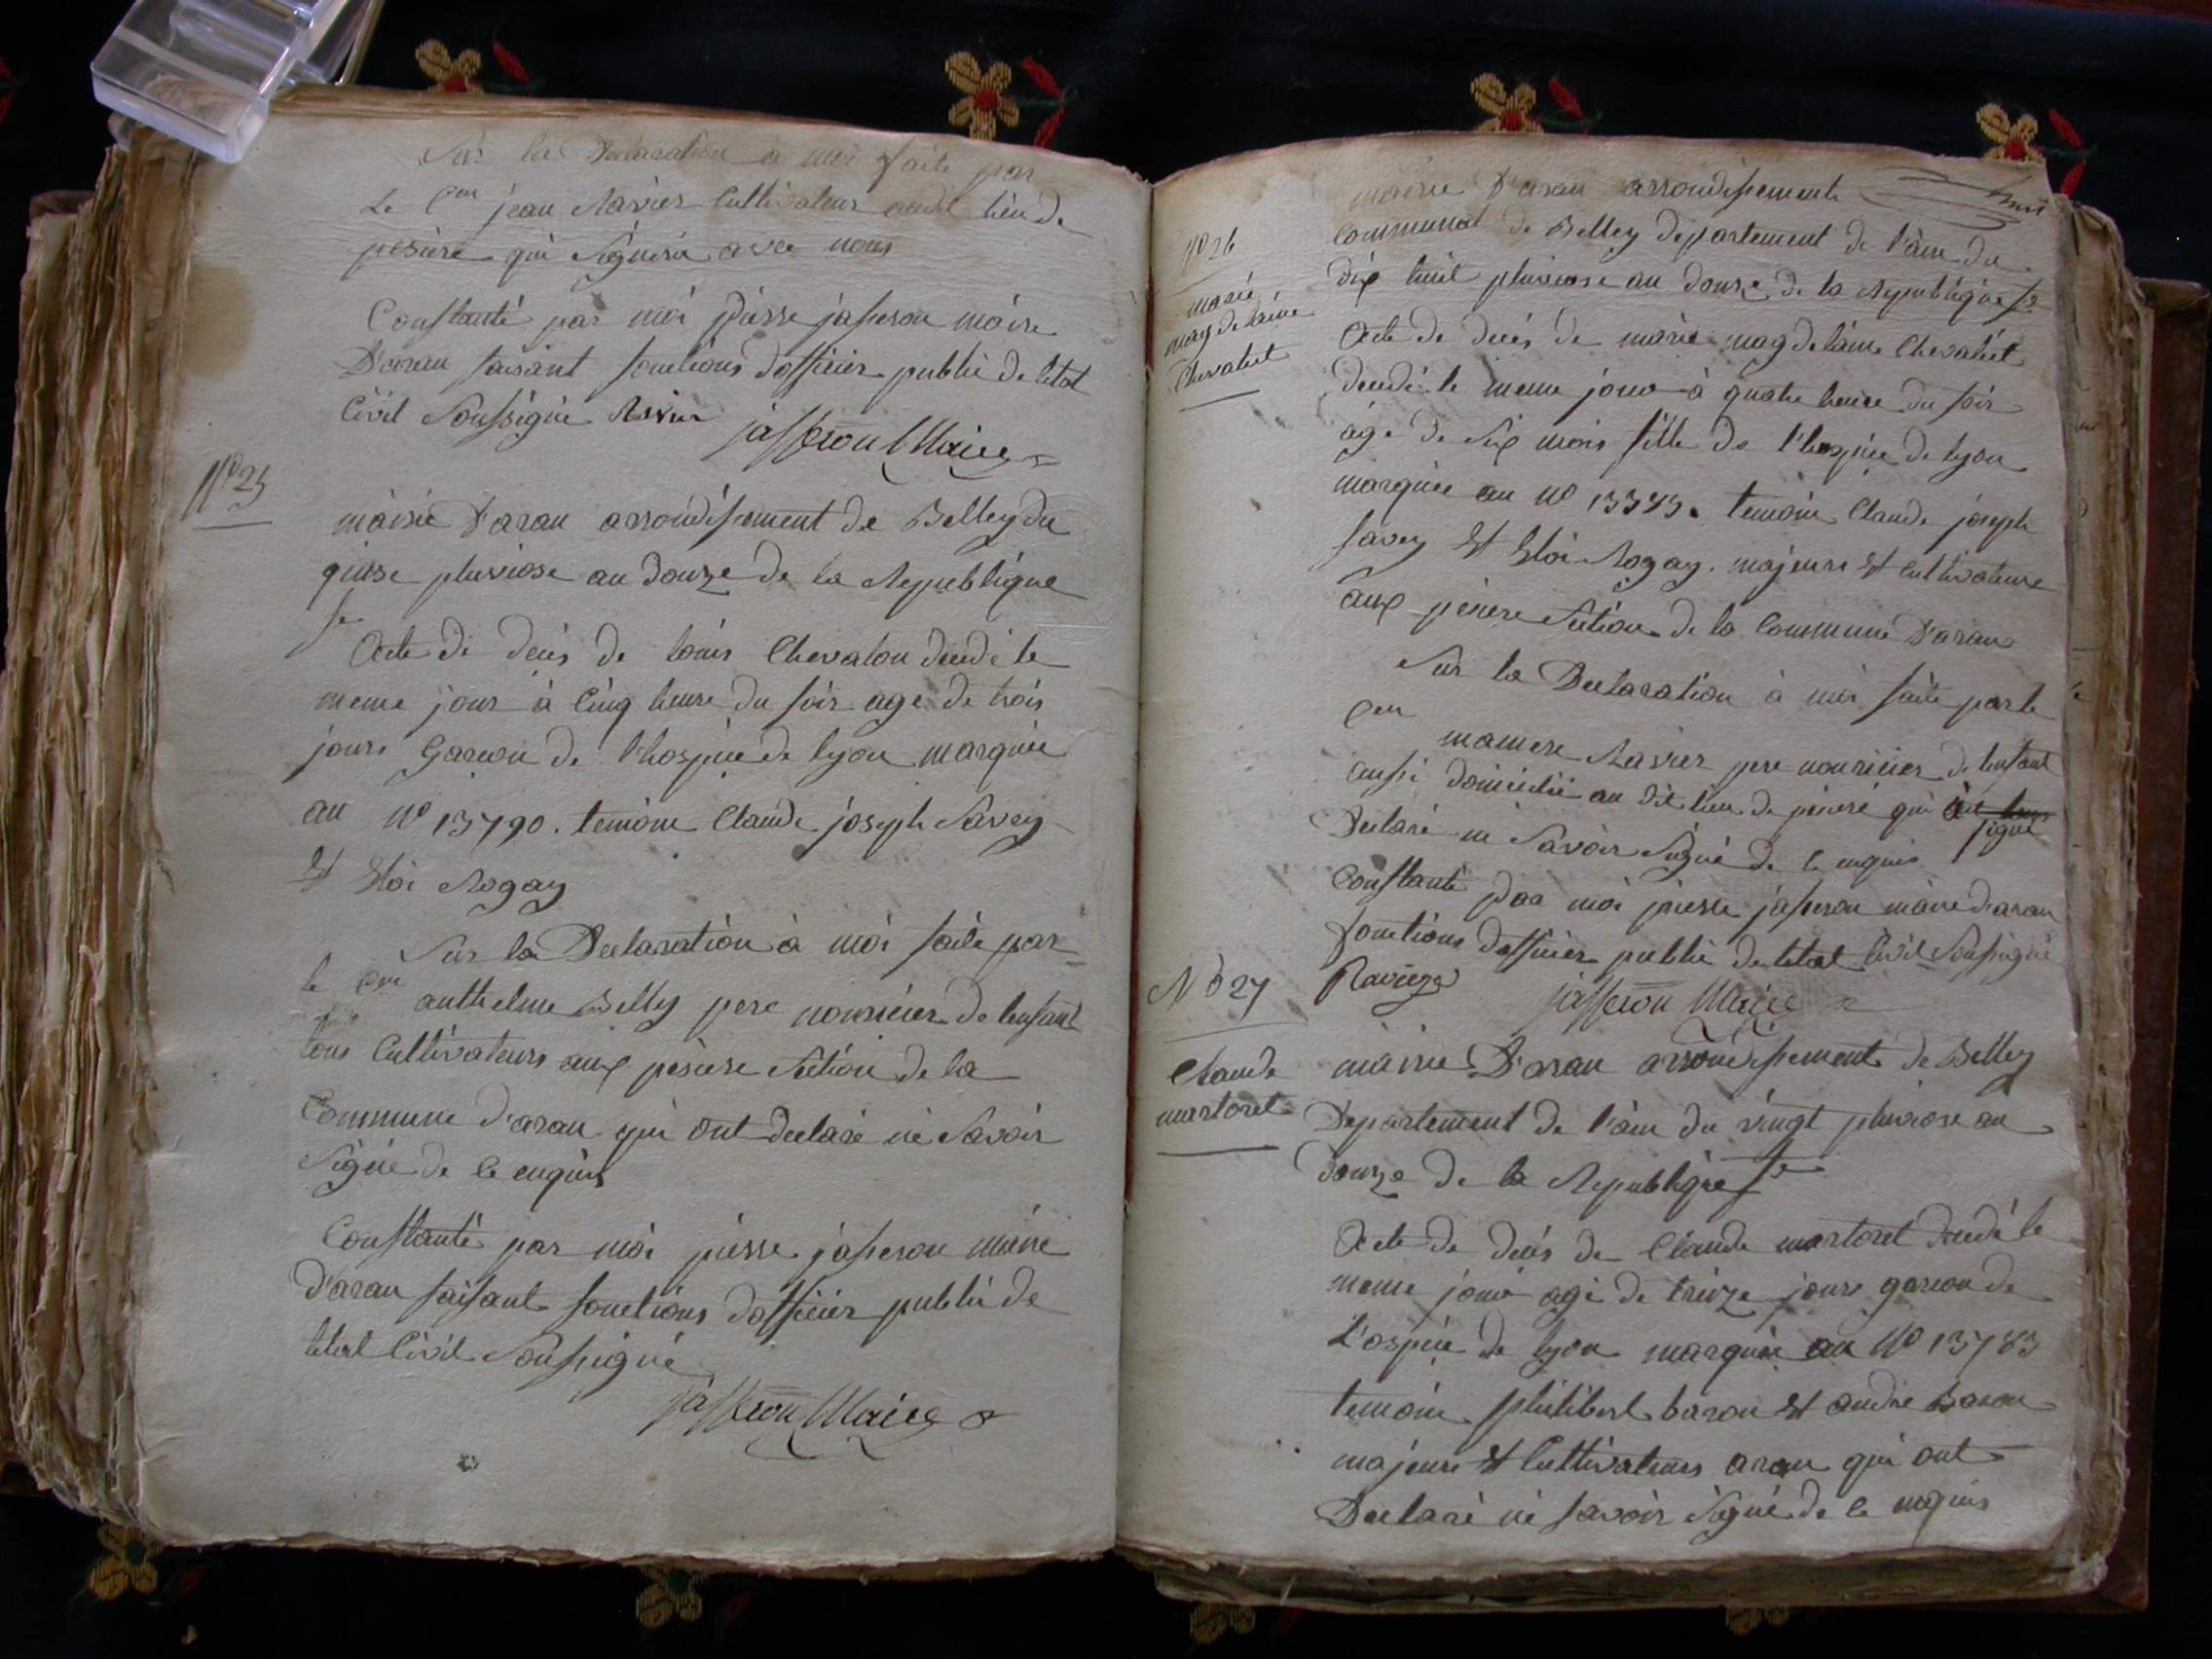 Sur la Declaration à moi faite par
Le Cen jean Ravier Cultivateur audit lieu de
pesiere qui Signera avec nous
Constanté par moi pierre jasseron maire
D'aran faisant fonctions dofficier public de letat
Civil Soussigné Ravier jasseron Maire
N° 25
mairie D'aran arrondissement de Belley du
quise pluviose an douze de la Republique
fse
Acte de decés de louis Chevalon decedé le
meme jour à Cinq heure du soir age de trois
jours Garcon de l'hospice de lyon marquée
au N° 13790. temoin Claude joseph Savey
Et Eloi Rogay
Sur la Declaration à moi faite par
le Cen anthelme Belly pere nouricier de lenfant
tous Cultivateurs aux pesiere Section de la
Commune d'aran qui ont declaré ne Savoir
Signé de ce enquis
Constanté par moi pierre jasseron maire
d'aran faisant fonctions dofficier public de
letat Civil Soussigné
jasseron Maire
mairie D'aran arrondissement
N° 26
marie
magdelaine
Chevalet
Communal de Belley departement de l'ain du
dix huit pluviose an douze de la Republique fse
Acte de decés de marie magdelaine Chevalet
decedé le meme jour à quatre heure du soir
agé de Six mois fille de l'hospice de lyon
marquée au N° 13343. temoin Claude joseph
Savey Et Eloi Rogay. majeurs Et Cultivateurs
aux pesiere Section de la Commune D'aran
Sur la Declaration à moi faite par le
Cen Ravier pere nouricier de lenfant
aussi domicilié au dit lieu de pesiere qui
signé
Declaré ne Savoir Signé de ce enquis
Constanté par moi pierre jasseron maire d'aran
fonctions dofficier public de letat Civil Soussigné
Ravier jasseron Maire
N° 27
Claude
martoret
mairie D'aran arrondissement de Belley
Departement de l'ain du vingt pluviose an
douze de la Republique fse
Acte de decés de Claude martoret decedé le
meme jour agé de treize jours garcon de
L'ospice de lyon marquée au N° 13783
temoin philibert baron Et andre Baron
majeurs Et Cultivateurs aran qui ont
Declaré ne savoir Signé de ce enquis